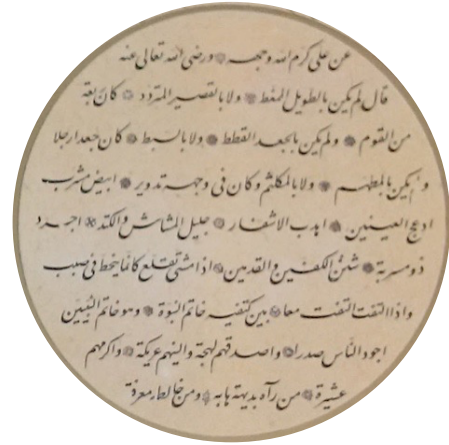 عن علي كرم الله وجهه ورضي الله تعالى عنه
قال لم يكن بالطويل الممغط ولا بالقصير المتردد كان ربعة
من القوم ولم يكن بالجعد القطط ولا بالسبط كان جعدا رجلا
ولم يكن بالمطهم ولا بالمكلثم وكان في وجهه تدوير ابيض مشرب
ادعج العينين اهدب الاشفار جليل المشاش والكتد اجرد
ذو مسربة شثن الكفين والقدمين اذا مشى تقلع كانما ينحط في صبب
واذا التفت التفت معا بين كتفيه خاتم النبوة وهو خاتم النبيين
اجود الناس صدرا واصدقهم لهجة والينهم عريكة واكرمهم
عشيرة من رآه بديهة هابه ومن خالطه معرفة